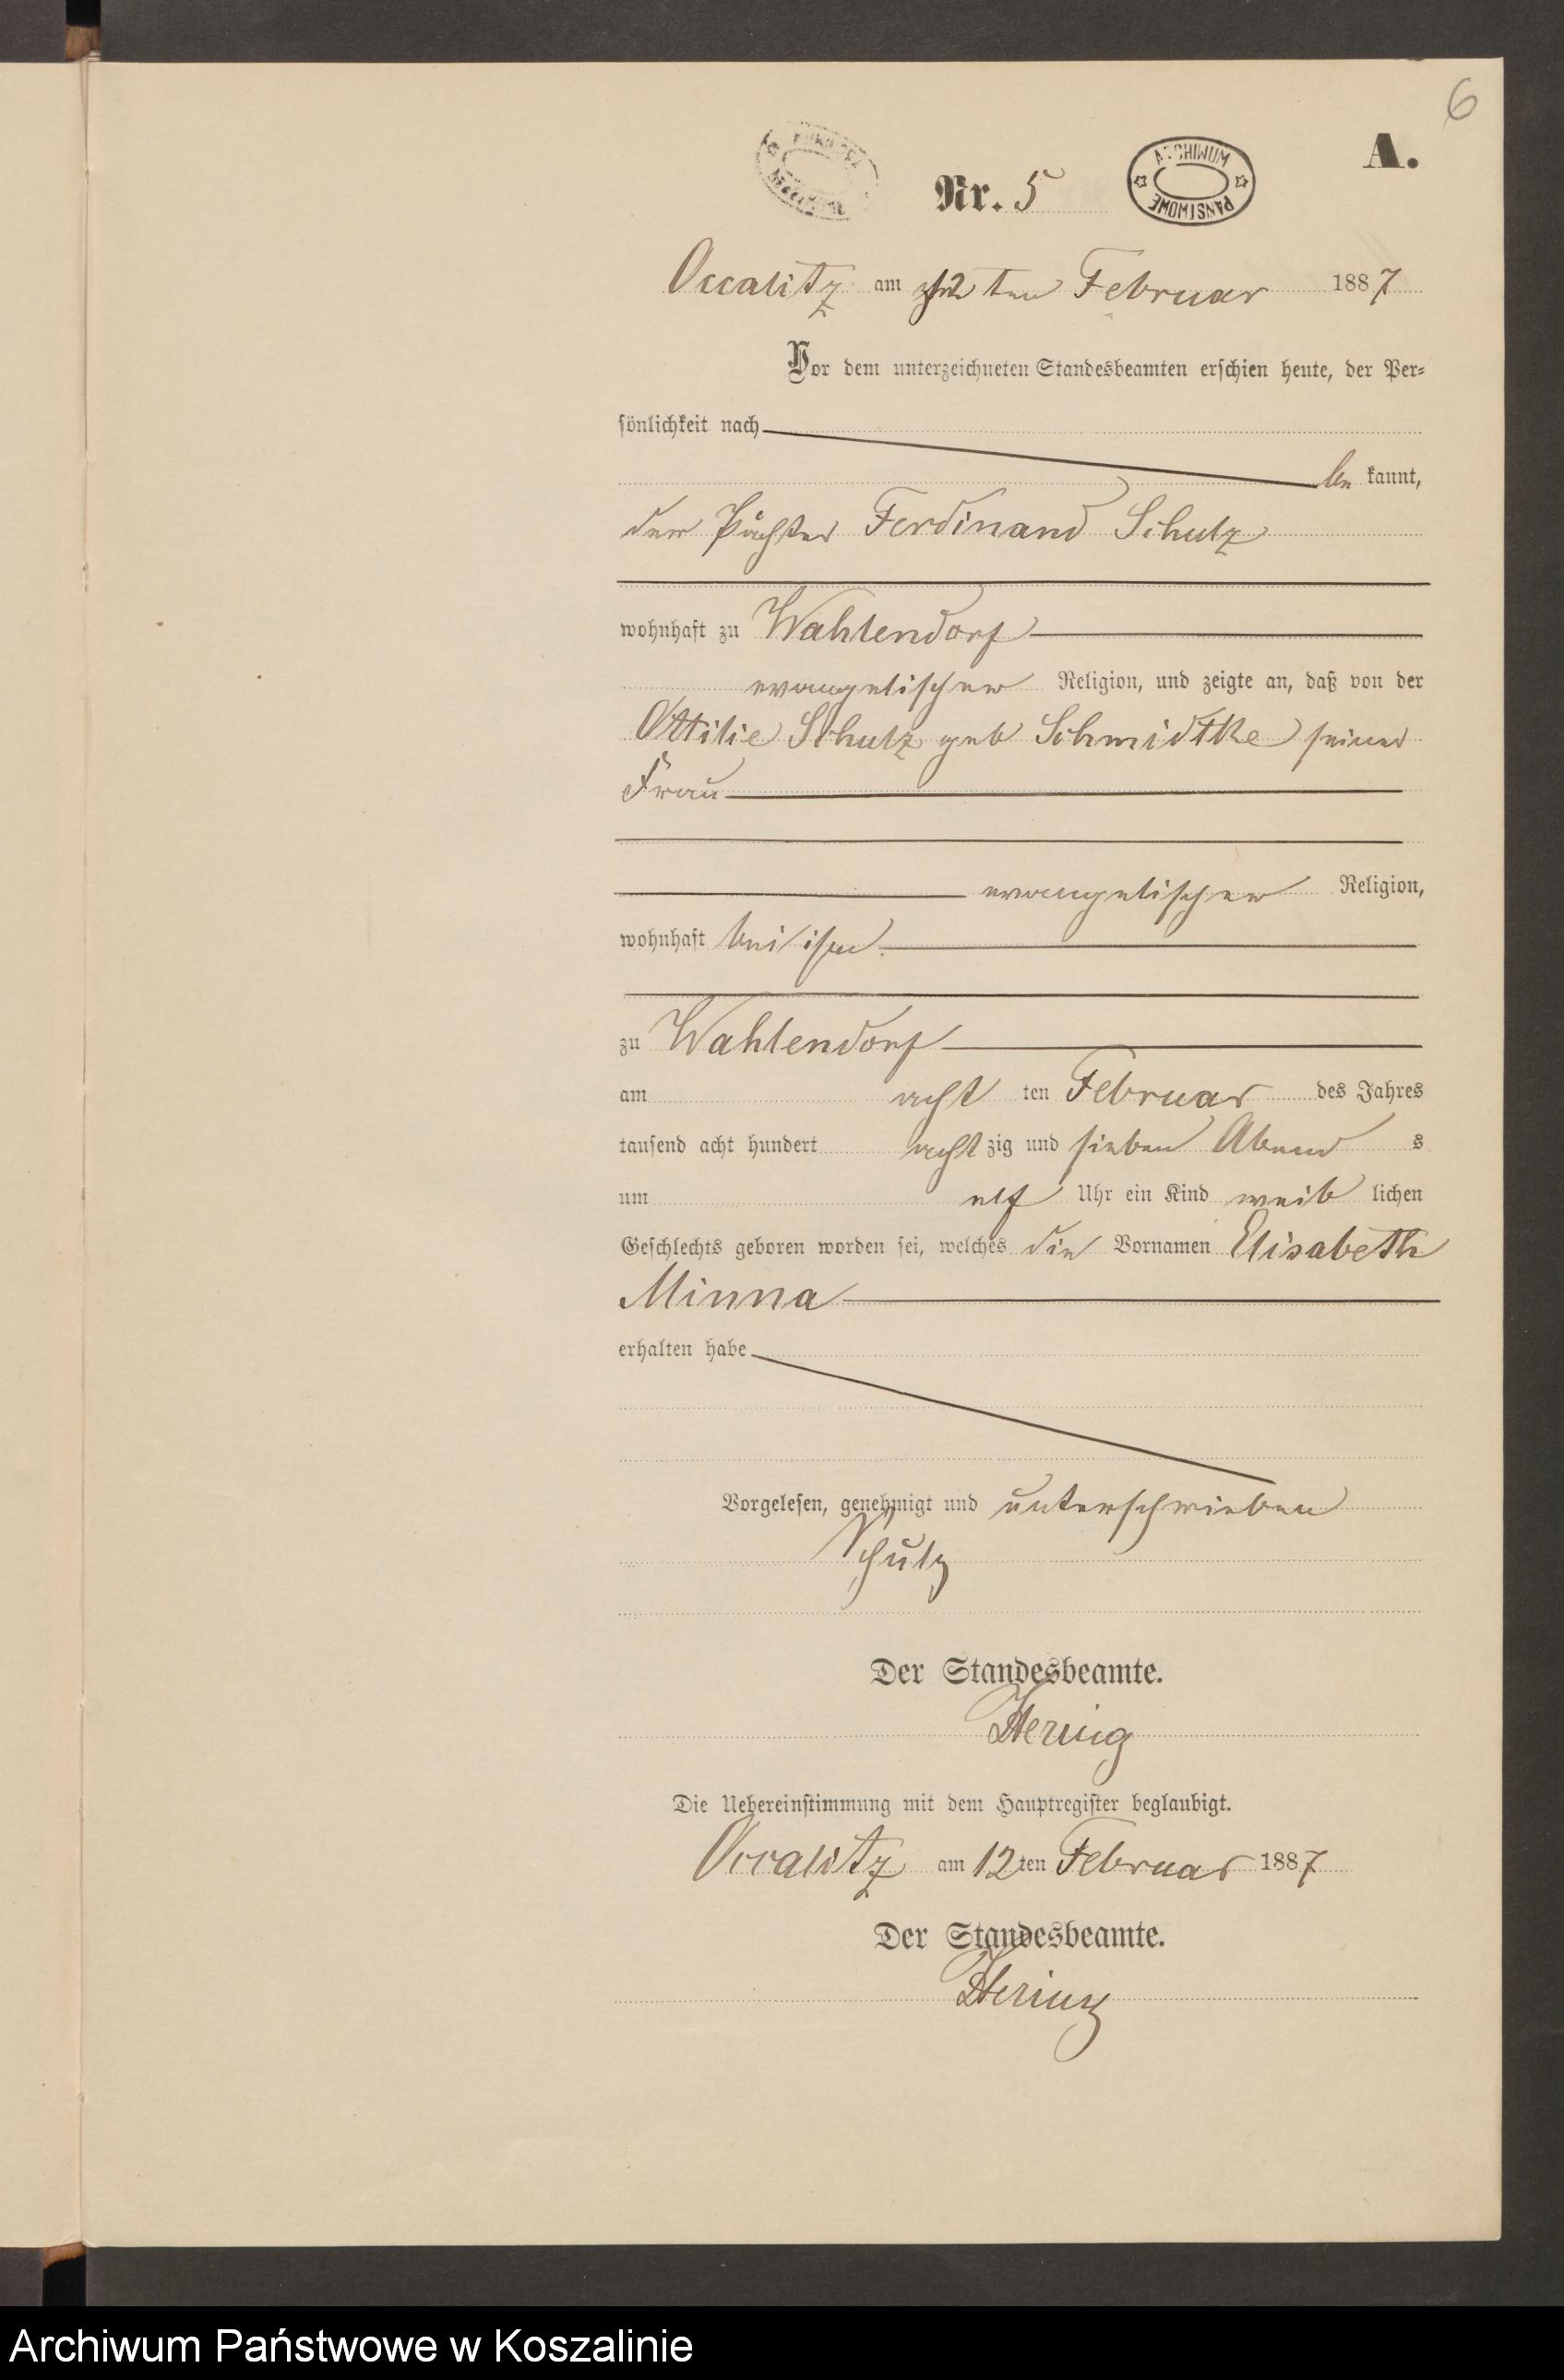 6
A.
Nr. 5
ARCHIWUM PAŃSTWOWE
Occalitz am 12 ten Februar 1887
Vor dem unterzeichneten Standesbeamten erschien heute, der Per-
sönlichkeit nach
be kannt,
der Pächter Ferdinand Schulz
wohnhaft zu Wahlendorf
evangelischer Religion, und zeigte an, daß von der
Ottilie Schulz geb Schmidtke seiner
Frau
evangelischer Religion,
wohnhaft bei ihm
zu Wahlendorf
am acht ten Februar des Jahres
tausend acht hundert acht zig und sieben Abend s
um elf Uhr ein Kind weib lichen
Geschlechts geboren worden sei, welches die Vornamen Elisabeth
Minna
erhalten habe
Vorgelesen, genehmigt und unterschrieben
Schulz
Der Standesbeamte.
Hering
Die Uebereinstimmung mit dem Hauptregister beglaubigt.
Occalitz am 12 ten Februar 1887
Der Standesbeamte.
Hering
Archiwum Państwowe w Koszalinie